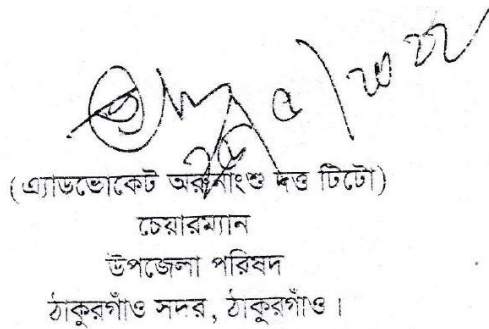 (এ্যাডভোকেট অরুনাংশু দত্ত টিটো)
চেয়ারম্যান
উপজেলা পরিষদ
ঠাকুরগাঁও সদর, ঠাকুরগাঁও।